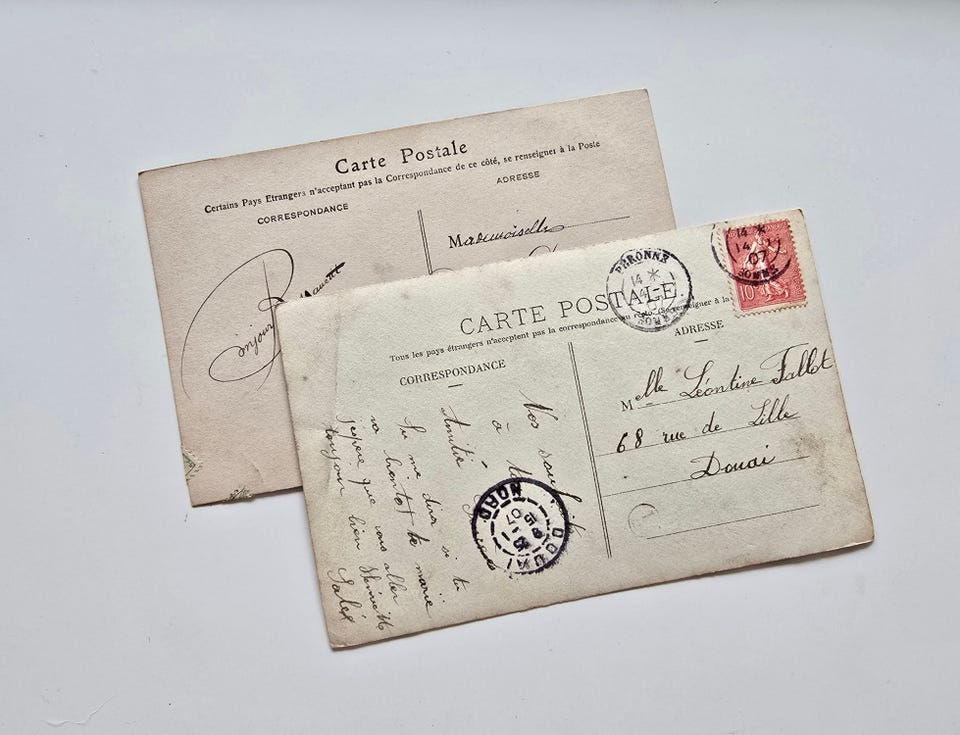 Carte Postale
Certains Pays Etrangers n'acceptant pas la Correspondance de ce côté, se renseigner à la Poste
CORRESPONDANCE
ADRESSE
Mademoiselle
CARTE POSTALE
Tous les pays étrangers n'acceptent pas la correspondance au recto, se renseigner à la
CORRESPONDANCE
ADRESSE
Mlle Léontine Fallot
68 rue de Lille
Douai
Vos
à
Amitié
Tu me diras si tu
va bientot te marié
J'espere que vous aller
toujour bien
PÉRONNE
14 *
SOMME
14 *
14
07
SOMME
10
DOUAI
NORD
07